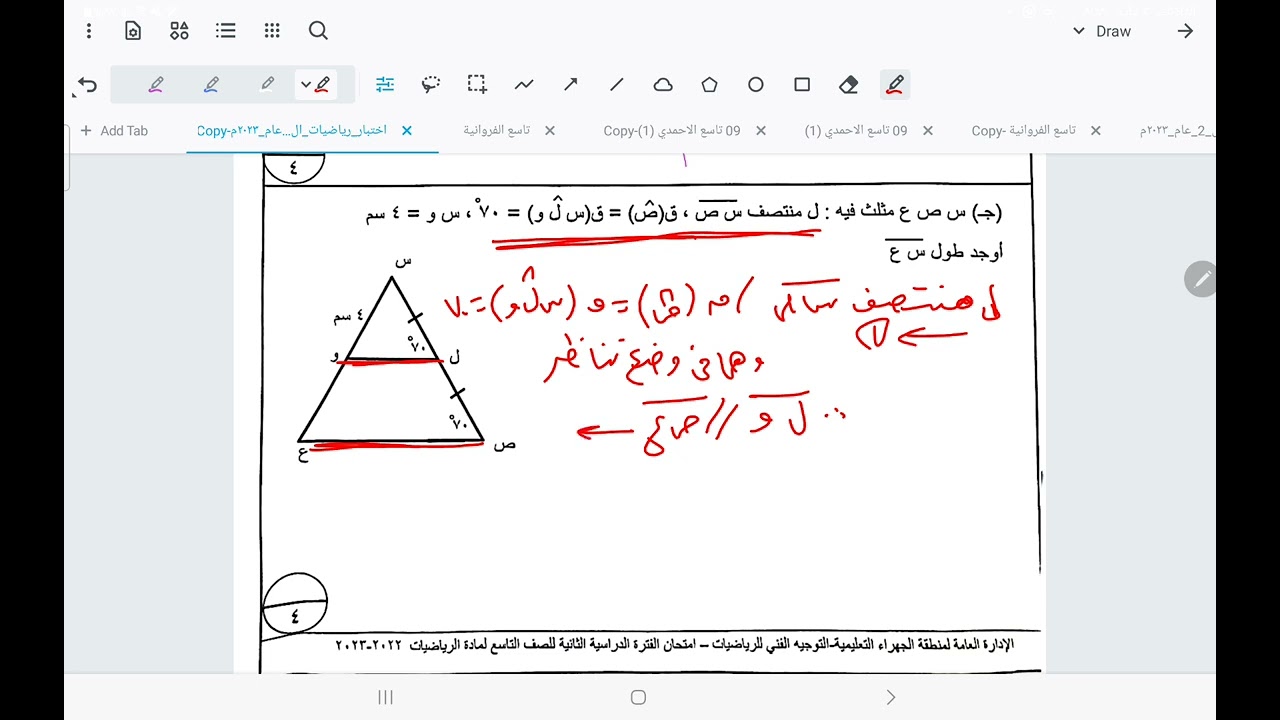 Draw
Add Tab
Copy-اختبار_رياضيات_ال...عام_٢٠٢٣م
تاسع الفروانية
Copy-(1) 09 تاسع الاحمدي
(1) 09 تاسع الاحمدي
Copy- تاسع الفروانية
_2_عام_٢٠٢٣م
٤
(جـ) س ص ع مثلث فيه : ل منتصف س ص ، ق(ص) = ق(س ل و) = ٧٠° ، س و = ٤ سم
أوجد طول س ع
س
٤ سم
٧٠°
و
ل
٧٠°
ع
ص
ل منتصف س ص ، ق (ص) = ق (س ل و) = ٧٠
① ←
وهما في وضع تناظر
∴ ل و // ص ع ←
٤
الإدارة العامة لمنطقة الجهراء التعليمية-التوجيه الفني للرياضيات – امتحان الفترة الدراسية الثانية للصف التاسع لمادة الرياضيات ٢٠٢٢-٢٠٢٣